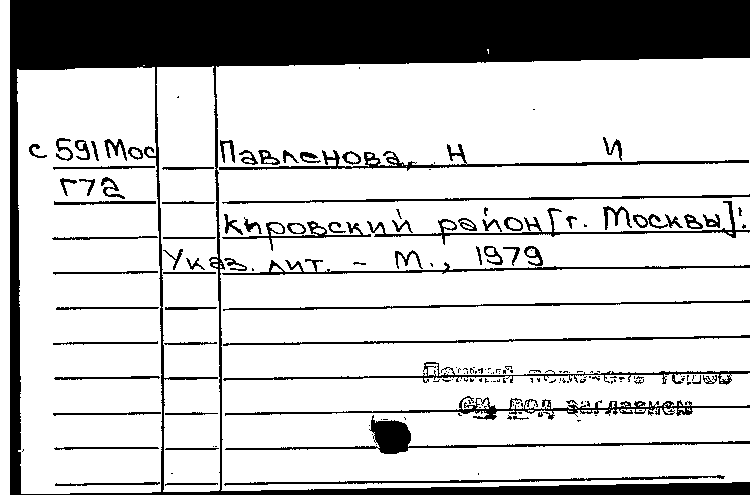 с 591Мос Павленова, Н И
Г72
Кировский район [г. Москвы]:
Указ. лит. - М., 1979
Полный перечень томов
см. под заглавием